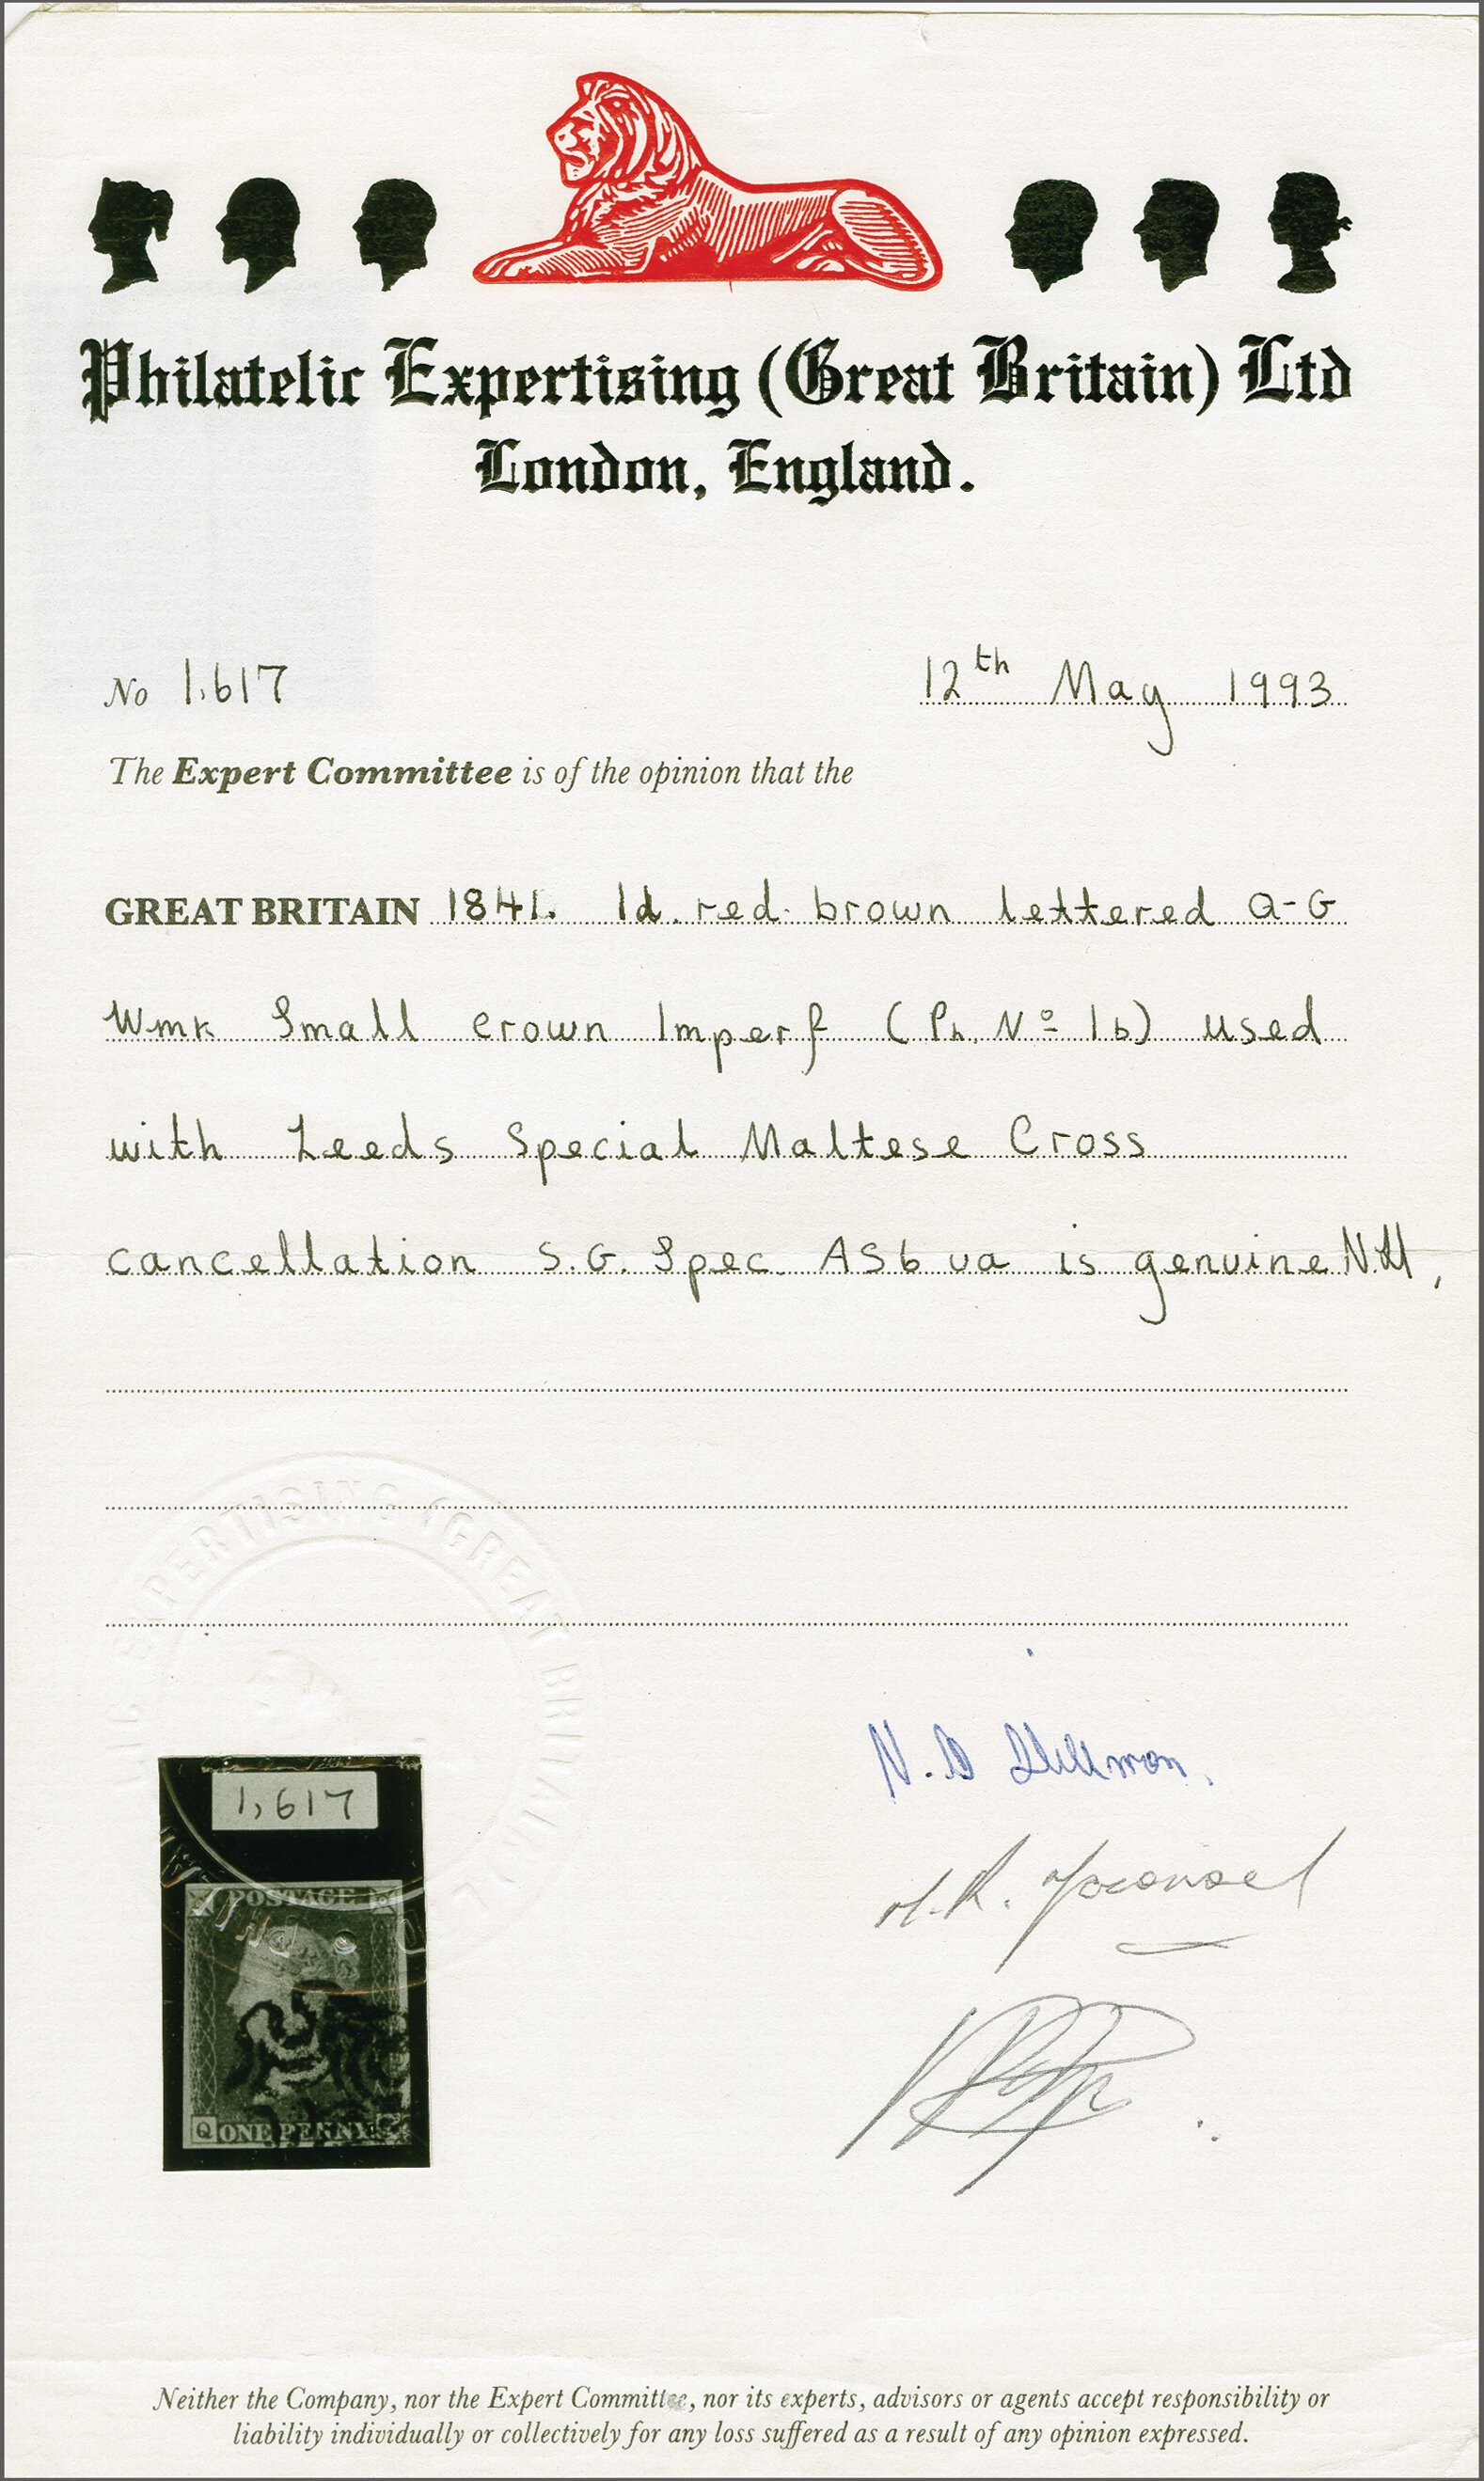 Philatelic Expertising (Great Britain) Ltd
London, England.
No 1,617
12th May 1993
The Expert Committee is of the opinion that the
GREAT BRITAIN 1841. 1d. red-brown lettered Q-G
Wmk Small crown Imperf (Ph. Nº 1b) used
with Leeds Special Maltese Cross
cancellation S.G. Spec. AS6 va is genuine
EXPERTISING (GREAT BRITAIN)
1,617
POSTAGE
Q ONE PENNY G
Neither the Company, nor the Expert Committee, nor its experts, advisors or agents accept responsibility or
liability individually or collectively for any loss suffered as a result of any opinion expressed.